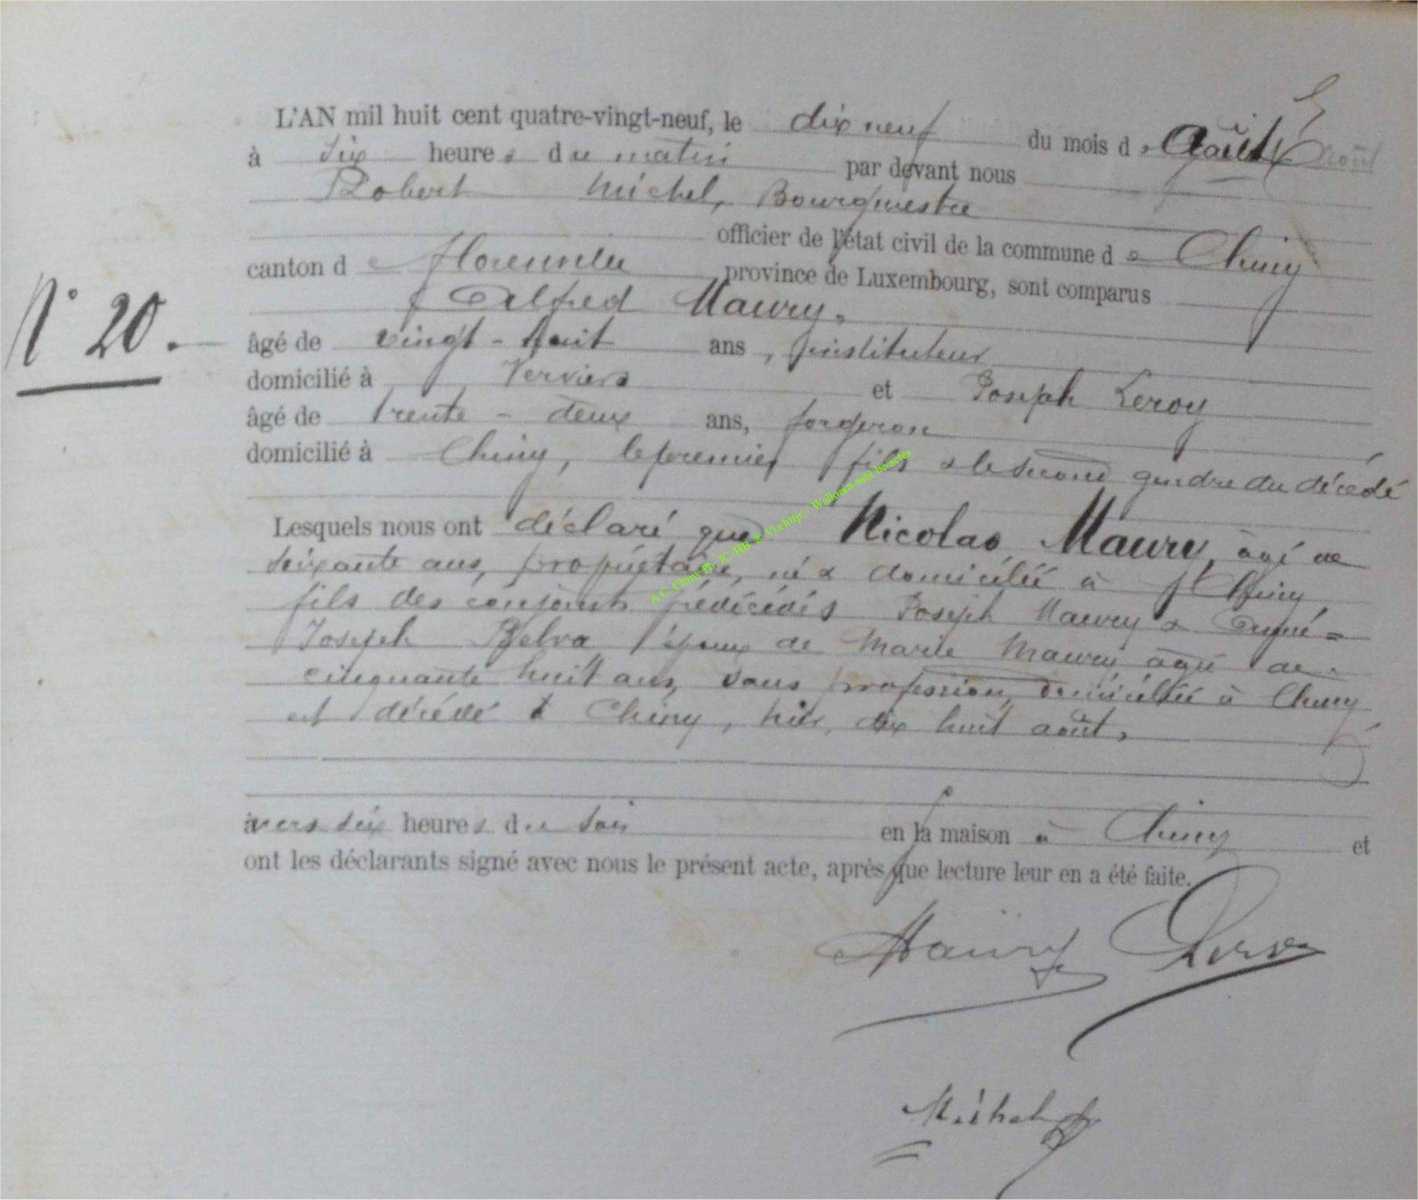 L'AN mil huit cent quatre-vingt-neuf, le dix neuf du mois d'Août août
à six heures du matin par devant nous
Robert Michel, Bourgmestre
officier de l'état civil de la commune de Chiny
canton de Florenville province de Luxembourg, sont comparus
Alfred Maury,
N° 20.
âgé de vingt-huit ans, instituteur
domicilié à Verviers et Joseph Leroy
âgé de trente-deux ans, forgeron
domicilié à Chiny, le premier fils & le second gendre du décédé
Lesquels nous ont déclaré que Nicolas Maury, âgé de
soixante ans, propriétaire, né & domicilié à Chiny
fils des conjoints prédécédés Joseph Maury &
Joseph époux de Marie Maury âgée de
cinquante huit ans, sans profession, domiciliée à Chiny
est décédé à Chiny, hier, dix huit août,
vers six heures du soir en la maison à Chiny et
ont les déclarants signé avec nous le présent acte, après que lecture leur en a été faite.
Maury Leroy
Michel